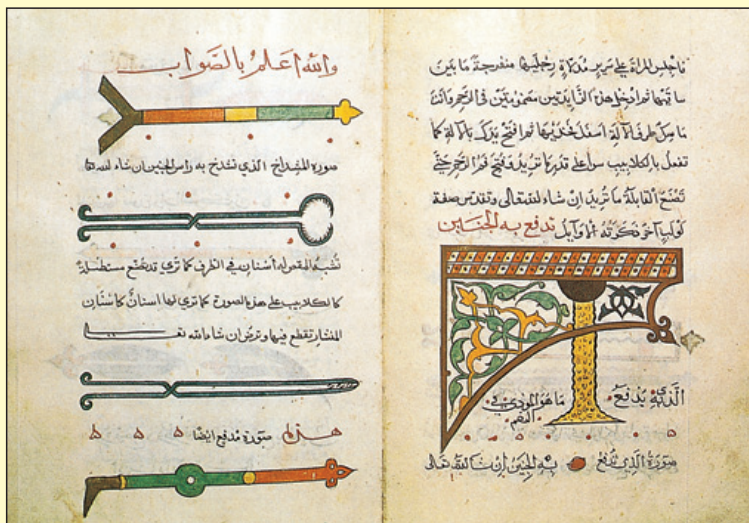 فاجلس المراة على سرير مدلاة رجليها منفرجة ما بين
ساقيها ثم ادخل هذه الزايدتين مضمومتين في الرحم وانت
ماسك طرف الالة اسفل فخذيها ثم افتح يدك بالالة كما
تفعل بالكلاليب سوا على قدر ما تريد فتح فم الرحم حتى
تصنع القابلة ما تريد ان شاء الله تعالى وتقدس صفة
لولب آخر ذكرته الاوايل تدفع به الجنين
الذي يدفع
ما هو
صورة الذي تدفع به الجنين ان شا الله تعالى
والله اعلم بالصواب
صورة المشداخ الذي تشدخ به راس الجنين ان شاء الله
تشبه المقص له اسنان في الطرف كما ترى قد تصنع مستطيلة
كالكلاليب على هذه الصورة كما ترى لها اسنان كاسنان
المنشار تقطع فيها وترض ان شاء الله تعا
هذه صورة مدفع ايضا